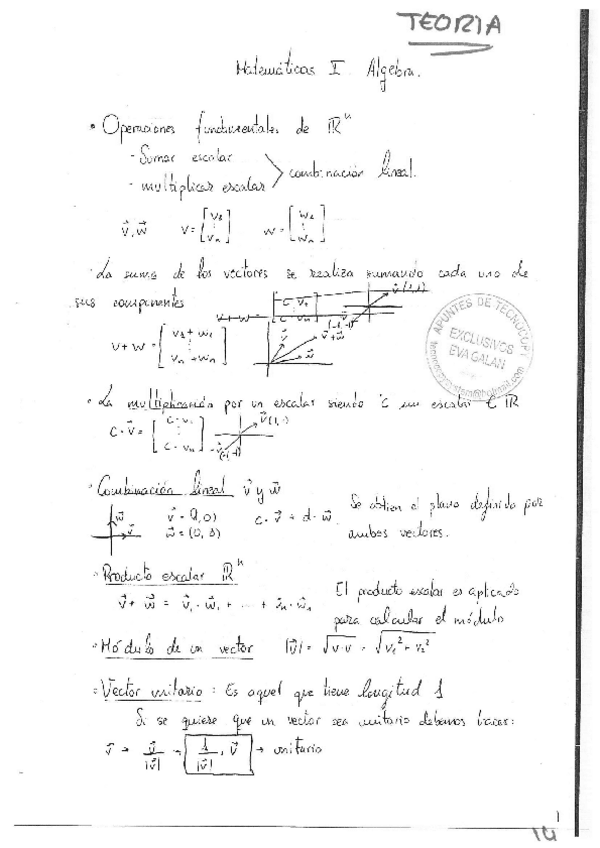 TEORIA
Matemáticas I Algebra.
• Operaciones fundamentales de ℝⁿ
- Sumar escalar
- multiplicar escalar > combinación lineal.
v⃗, w⃗ v = [v₁ ⋮ vₙ] w = [w₁ ⋮ wₙ]
• La suma de los vectores se realiza sumando cada uno de
sus componentes
v + w = [v₁ + w₁ ⋮ vₙ + wₙ]
v⃗ w⃗ v⃗+w⃗
APUNTES DE TECNOCOPY
EXCLUSIVOS
EVA GALAN
• La multiplicación por un escalar siendo 'c' un escalar ∈ ℝ
c · v⃗ = [c · v₁ ⋮ c · vₙ] v⃗(1,1) -v⃗(-1,-1)
• Combinación lineal v⃗ y w⃗
w⃗ v⃗ v⃗ = (1,0) c · v⃗ + d · w⃗. Se obtien el plano definido por
w⃗ = (0,3) ambos vectores.
• Producto escalar ℝⁿ
v⃗ + w⃗ = v⃗₁ · w⃗₁ + ... + v⃗ₙ · w⃗ₙ El producto escalar es aplicado
para calcular el módulo
• Módulo de un vector |v⃗| = √v·v = √v₁² + v₂²
• Vector unitario: Es aquel que tiene longitud 1
Si se quiere que un vector sea unitario debemos hacer:
v⃗ → v⃗/|v⃗| → 1/|v⃗| · v⃗ → unitario
1